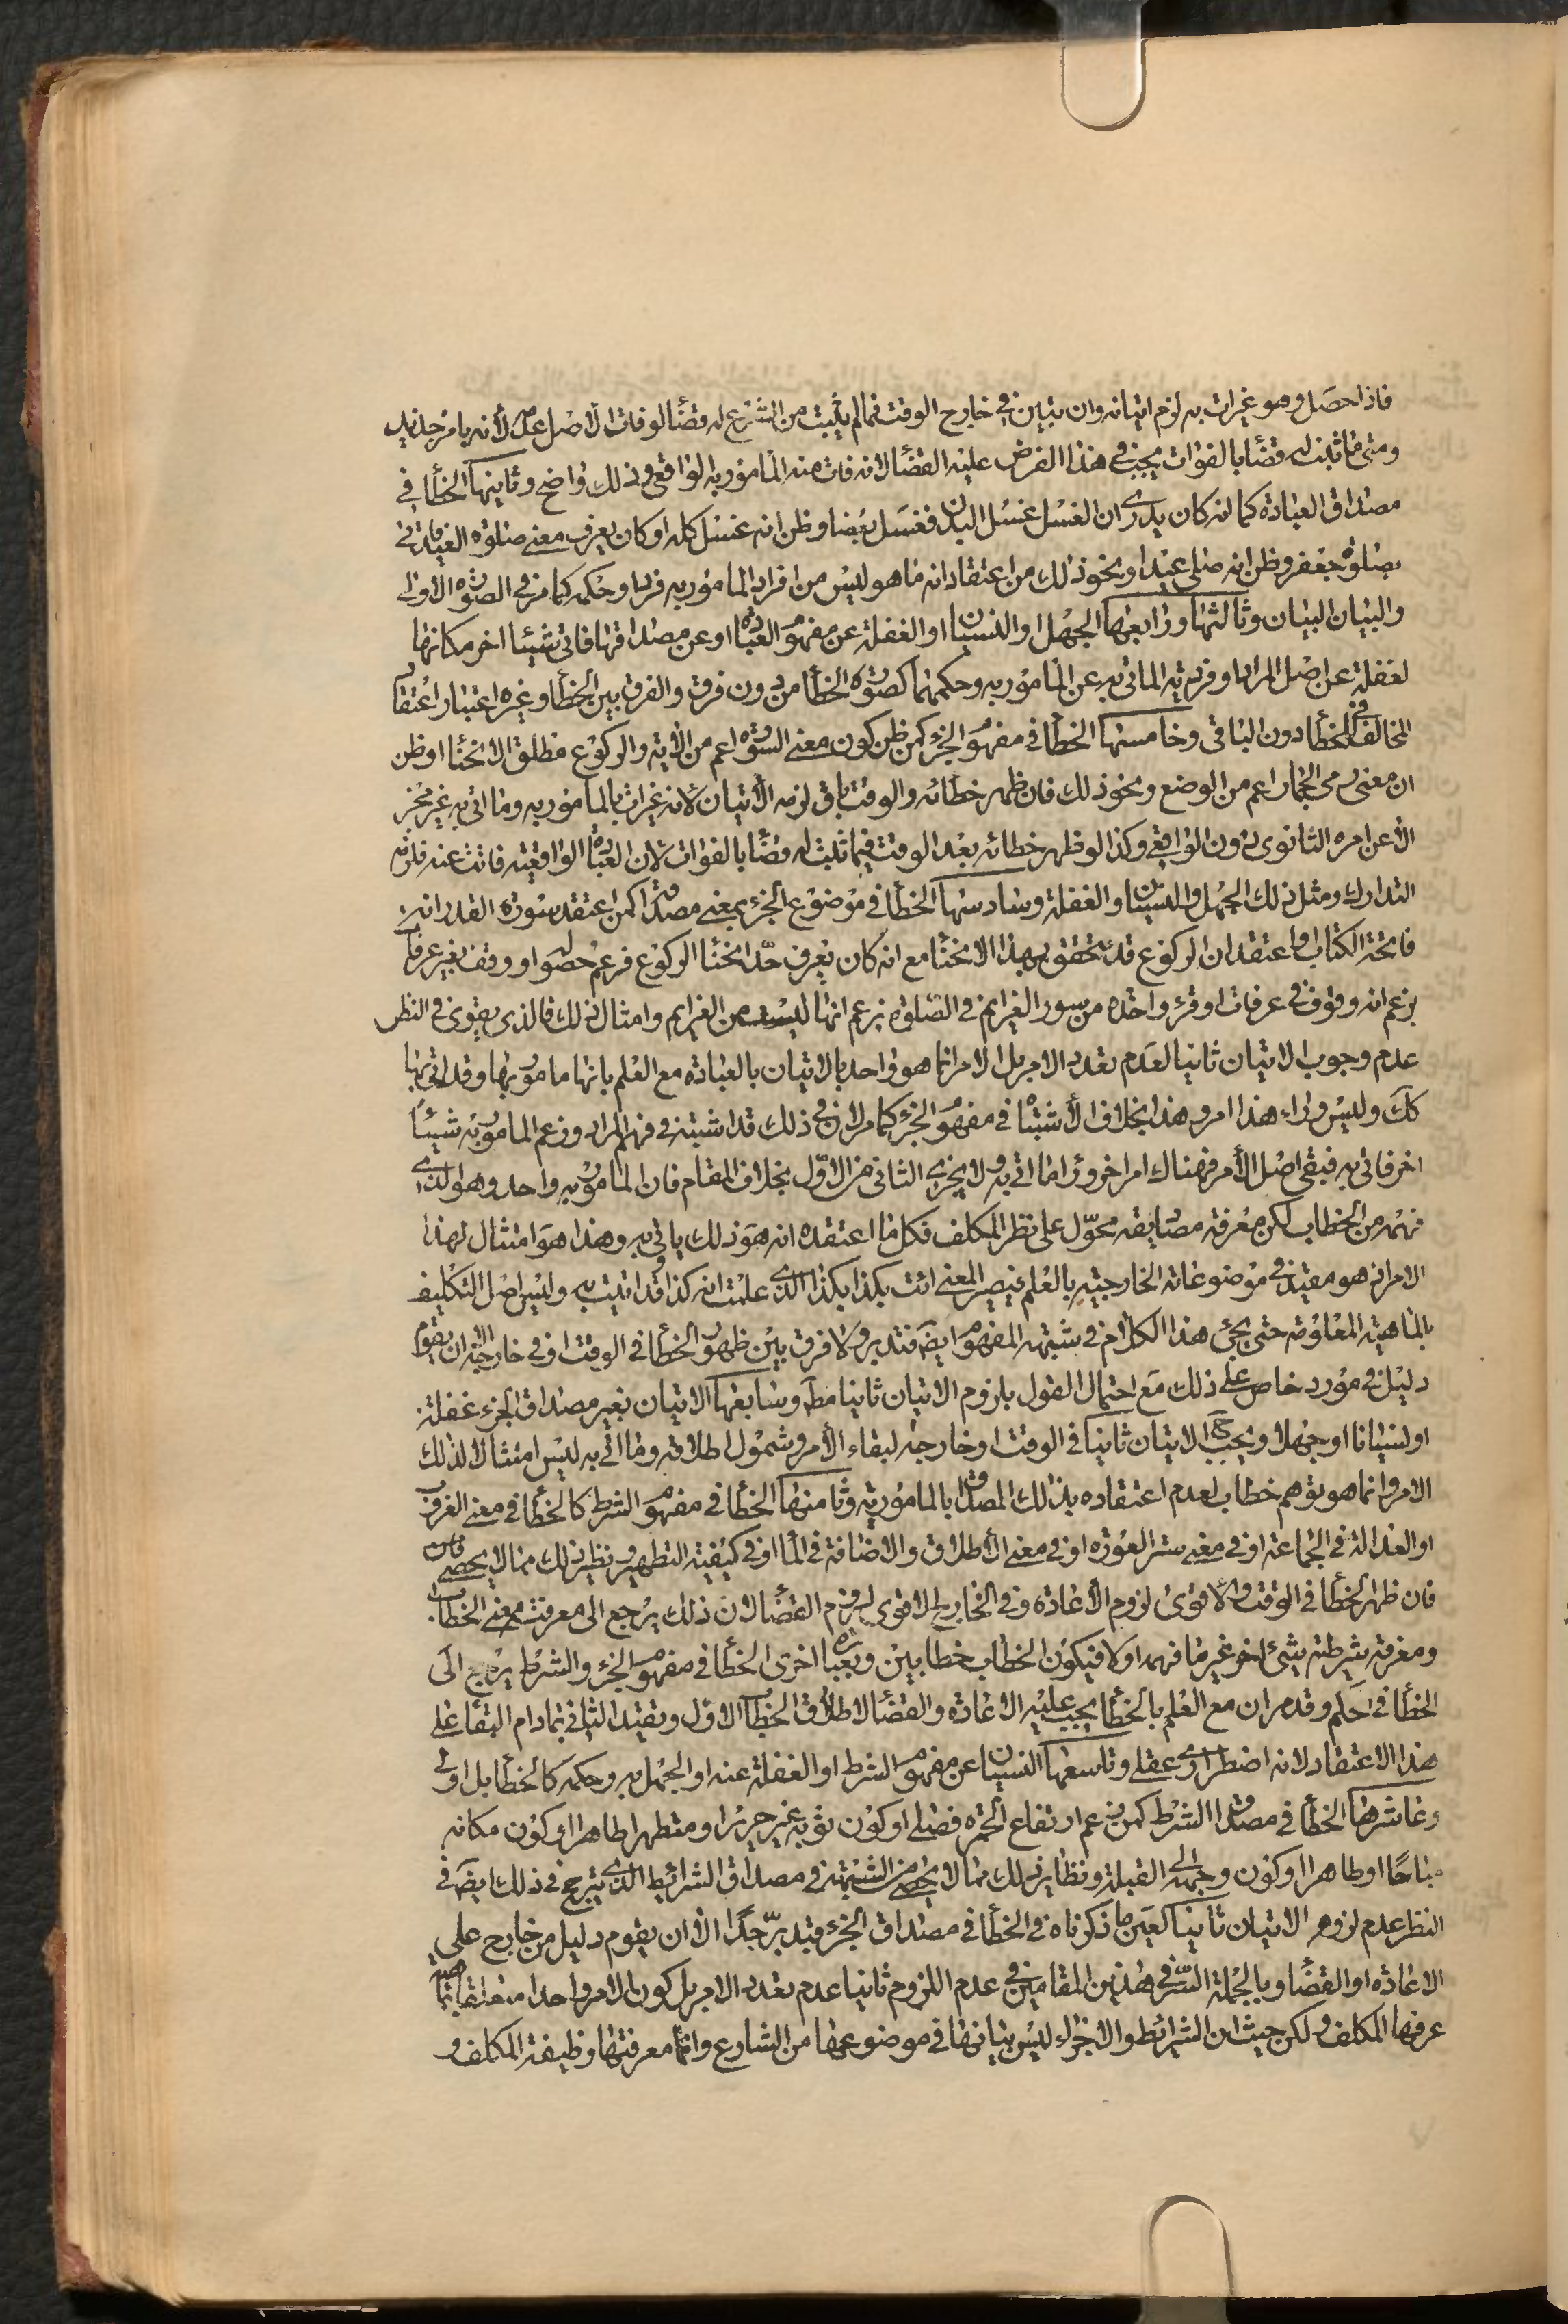 فاذا حصل وهو غير ات به لزم اتيانه وان تبين في خارج الوقت فما لم يثبت من الشرع له قضاء لو فات الاصل عدمه لأنه بامر جديد
ومتى ما ثبت له قضاء بالفوات يجب في هذا الفرض عليه القضاء لانه فات منه المأمور به الواقعي وذلك واضح وثانيها الخطأ في
مصداق العبادة كما لو كان يدري ان الغسل غسل البدن فغسل بعضا وظن انه غسل كله او كان يعرف معنى صلوة العيد فاتى
بصلوة جعفر وظن انه صلى عيدا ونحو ذلك من اعتقاد انه ما هو ليس من افراد المامور به فردا وحكمه كما مر في الصورة الاولى
والبيان البيان وثالثها ورابعها الجهل او النسيان او الغفلة عن مفهوم العبادة او عن مصداقها فاتى شيئا اخر مكانها
لغفلة عن اصل المراد او فردية الماتي به عن المأمور به وحكمهما كصورة الخطأ من دون فرق والفرق بين الخطأ وغيره اعتبار اعتقاد
المخالف في الخطأ دون الباقي وخامسها الخطأ في مفهوم الجزء كمن ظن كون معنى السورة اعم من الأية والركوع مطلق الانحناء او ظن
ان معنى رمي الجمار اعم من الوضع ونحو ذلك فان ظهر خطائه والوقت باق لزمه الأتيان لانه غير ات بالمامور به وما اتى به غير مجز
الا عن امره الثانوي دون الواقعي وكذا لو ظهر خطائه بعد الوقت فيما ثبت له قضاء بالفوات لان العبادة الواقعية فاتت عنه فلزمه
التدارك ومثل ذلك الجهل والنسيان والغفلة وسادسها الخطأ في موضوع الجزء بمعنى مصداقه كمن اعتقد سورة القدر انه
فاتحة الكتاب واعتقد ان الركوع قد تحقق بهذا الانحناء مع انه كان يعرف حد انحناء الركوع فزعم حصوله او وقف بغير عرفات
بزعم انه وقوف في عرفات او قرء واحدة من سور العزائم في الصلوة بزعم انها ليست من العزايم وامثال ذلك فالذي يقوى في النظر
عدم وجوب الاتيان ثانيا لعدم تعدد الامر بل الامر انما هو واحد بالاتيان بالعبادة مع العلم بانها مامور بها وقد اتى بها
كك وليس وراء هذا امر وهذا بخلاف الأشتباه في مفهوم الجزء كما مر لان في ذلك قد اشتبه في فهم المراد وزعم المامور به شيئا
اخر فاتى به فبقى اصل الأمر فهناك امر اخر وراء ما اتى به ولا يجزي الثاني من الاول بخلاف المقام فان المامور به واحد وهو الذي
فهمه من الخطاب لكن معرفة مصاديقه محول على نظر المكلف فكل ما اعتقده انه هو ذلك ياتي به وهذا هو امتثال لهذا
الامر لانه هو مقيد في موضوعاته الخارجية بالعلم فيصير المعنى ائت بكذا بكذا الذي علمت انه كذا وقد اتيت به وليس اصل التكليف
بالماهية المعلومة حتى يجئ هذا الكلام في شبهة المفهوم ايضا فتدبر ولا فرق بين ظهور الخطأ في الوقت او في خارجه الا ان يقوم
دليل في مورد خاص على ذلك مع احتمال القول بلزوم الاتيان ثانيا مط وسابعها الاتيان بغير مصداق الجزء غفلة
او نسيانا او جهلا ويجب ح الاتيان ثانيا في الوقت او خارجه لبقاء الأمر وشمول اطلاقه وما اتى به ليس امتثالا لذلك
الامر وانما هو توهم خطاب لعدم اعتقاده بذلك المصداق بالمامورية وثامنها الخطأ في مفهوم الشرط كالخطأ في معنى الغروب
او العدالة في الجماعة او في معنى ستر العورة او في معنى الأطلاق والاضافة في الماء او في كيفية التطهير ونظير ذلك مما لا يحصى
فان ظهر الخطأ في الوقت فالاقوى لزوم الأعادة وفي الخارج الاقوى لزوم القضاء لان ذلك يرجع الى معرفة معنى الخطاب
ومعرفة شرطية شئ اخر غير ما فهمه اولا فيكون الخطاب خطابين وبعبارة اخرى الخطأ في مفهوم الجزء والشرط يرجع الى
الخطأ في الحكم وقد مر ان مع العلم بالخطأ يجب عليه الاعادة والقضاء لاطلاق الخطاب الاول وتقيد الثاني بما دام البقاء على
هذا الاعتقاد لانه اضطراري عقلي وتاسعها النسيان عن مفهوم الشرط او الغفلة عنه او الجهل به وحكمه كالخطأ بل اولى
وعاشرها الخطأ في مصداق الشرط كمن زعم ارتفاع الحمرة فصلى او كون ثوبه غير حرير او متطهرا طاهرا او كون مكانه
مباحا او طاهرا او كون وجهه الى القبلة ونظاير ذلك مما لا يحصى من الشبهة في مصداق الشرائط الذي يترجح في ذلك ايضا في
النظر عدم لزوم الاتيان ثانيا لعين ما ذكرناه في الخطأ في مصداق الجزء فتدبر جدا الا ان يقوم دليل من خارج على
الاعادة او القضاء وبالجملة السر في هذين المقامين في عدم اللزوم ثانيا عدم تعدد الامر بل كون الامر واحدا متعلقا بما
عرفها المكلف ولكن حيث ان الشرائط والاجزاء ليس بيانها في موضوعها من الشارع وانما معرفتها وظيفة المكلف و